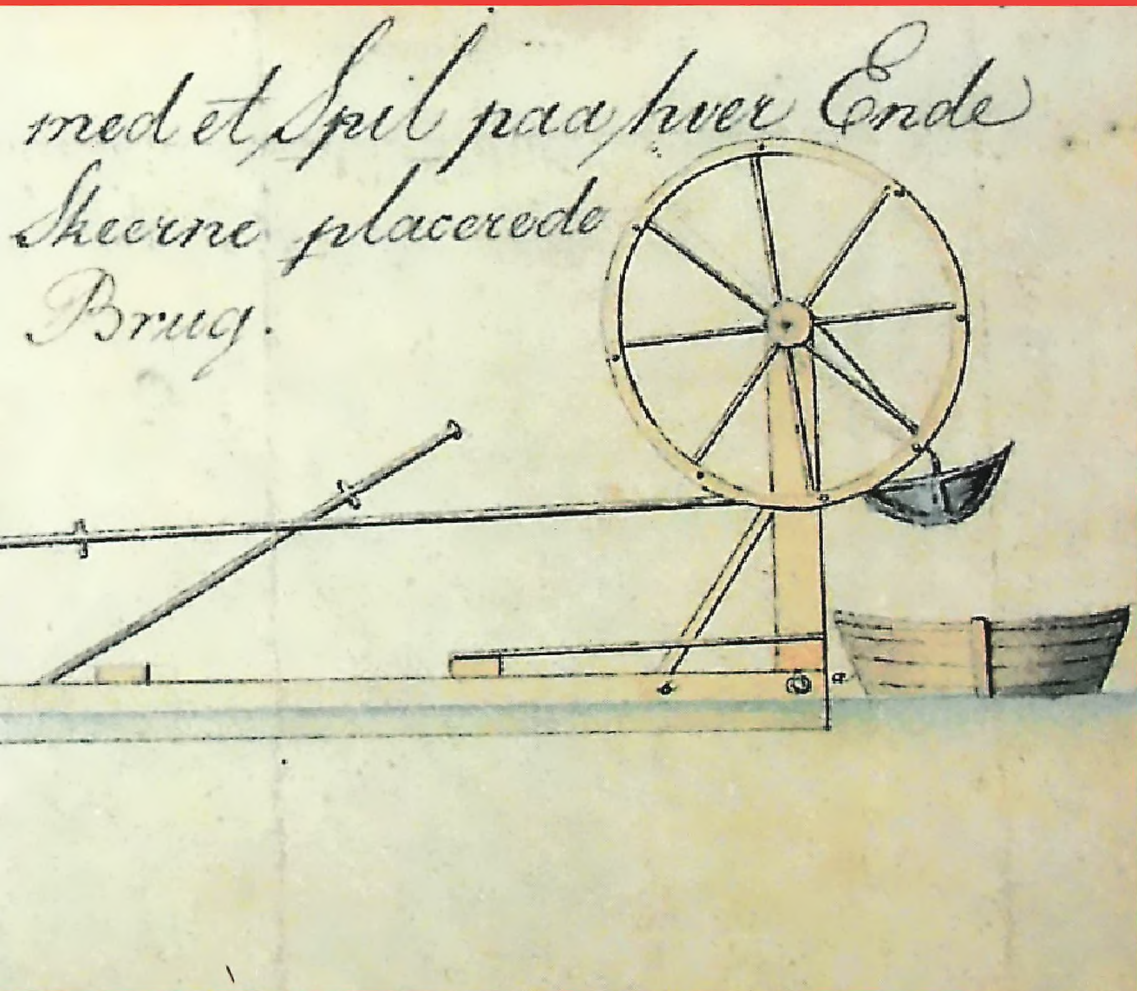 med et Spil paa hver Ende
Skeerne placerede
Brug.